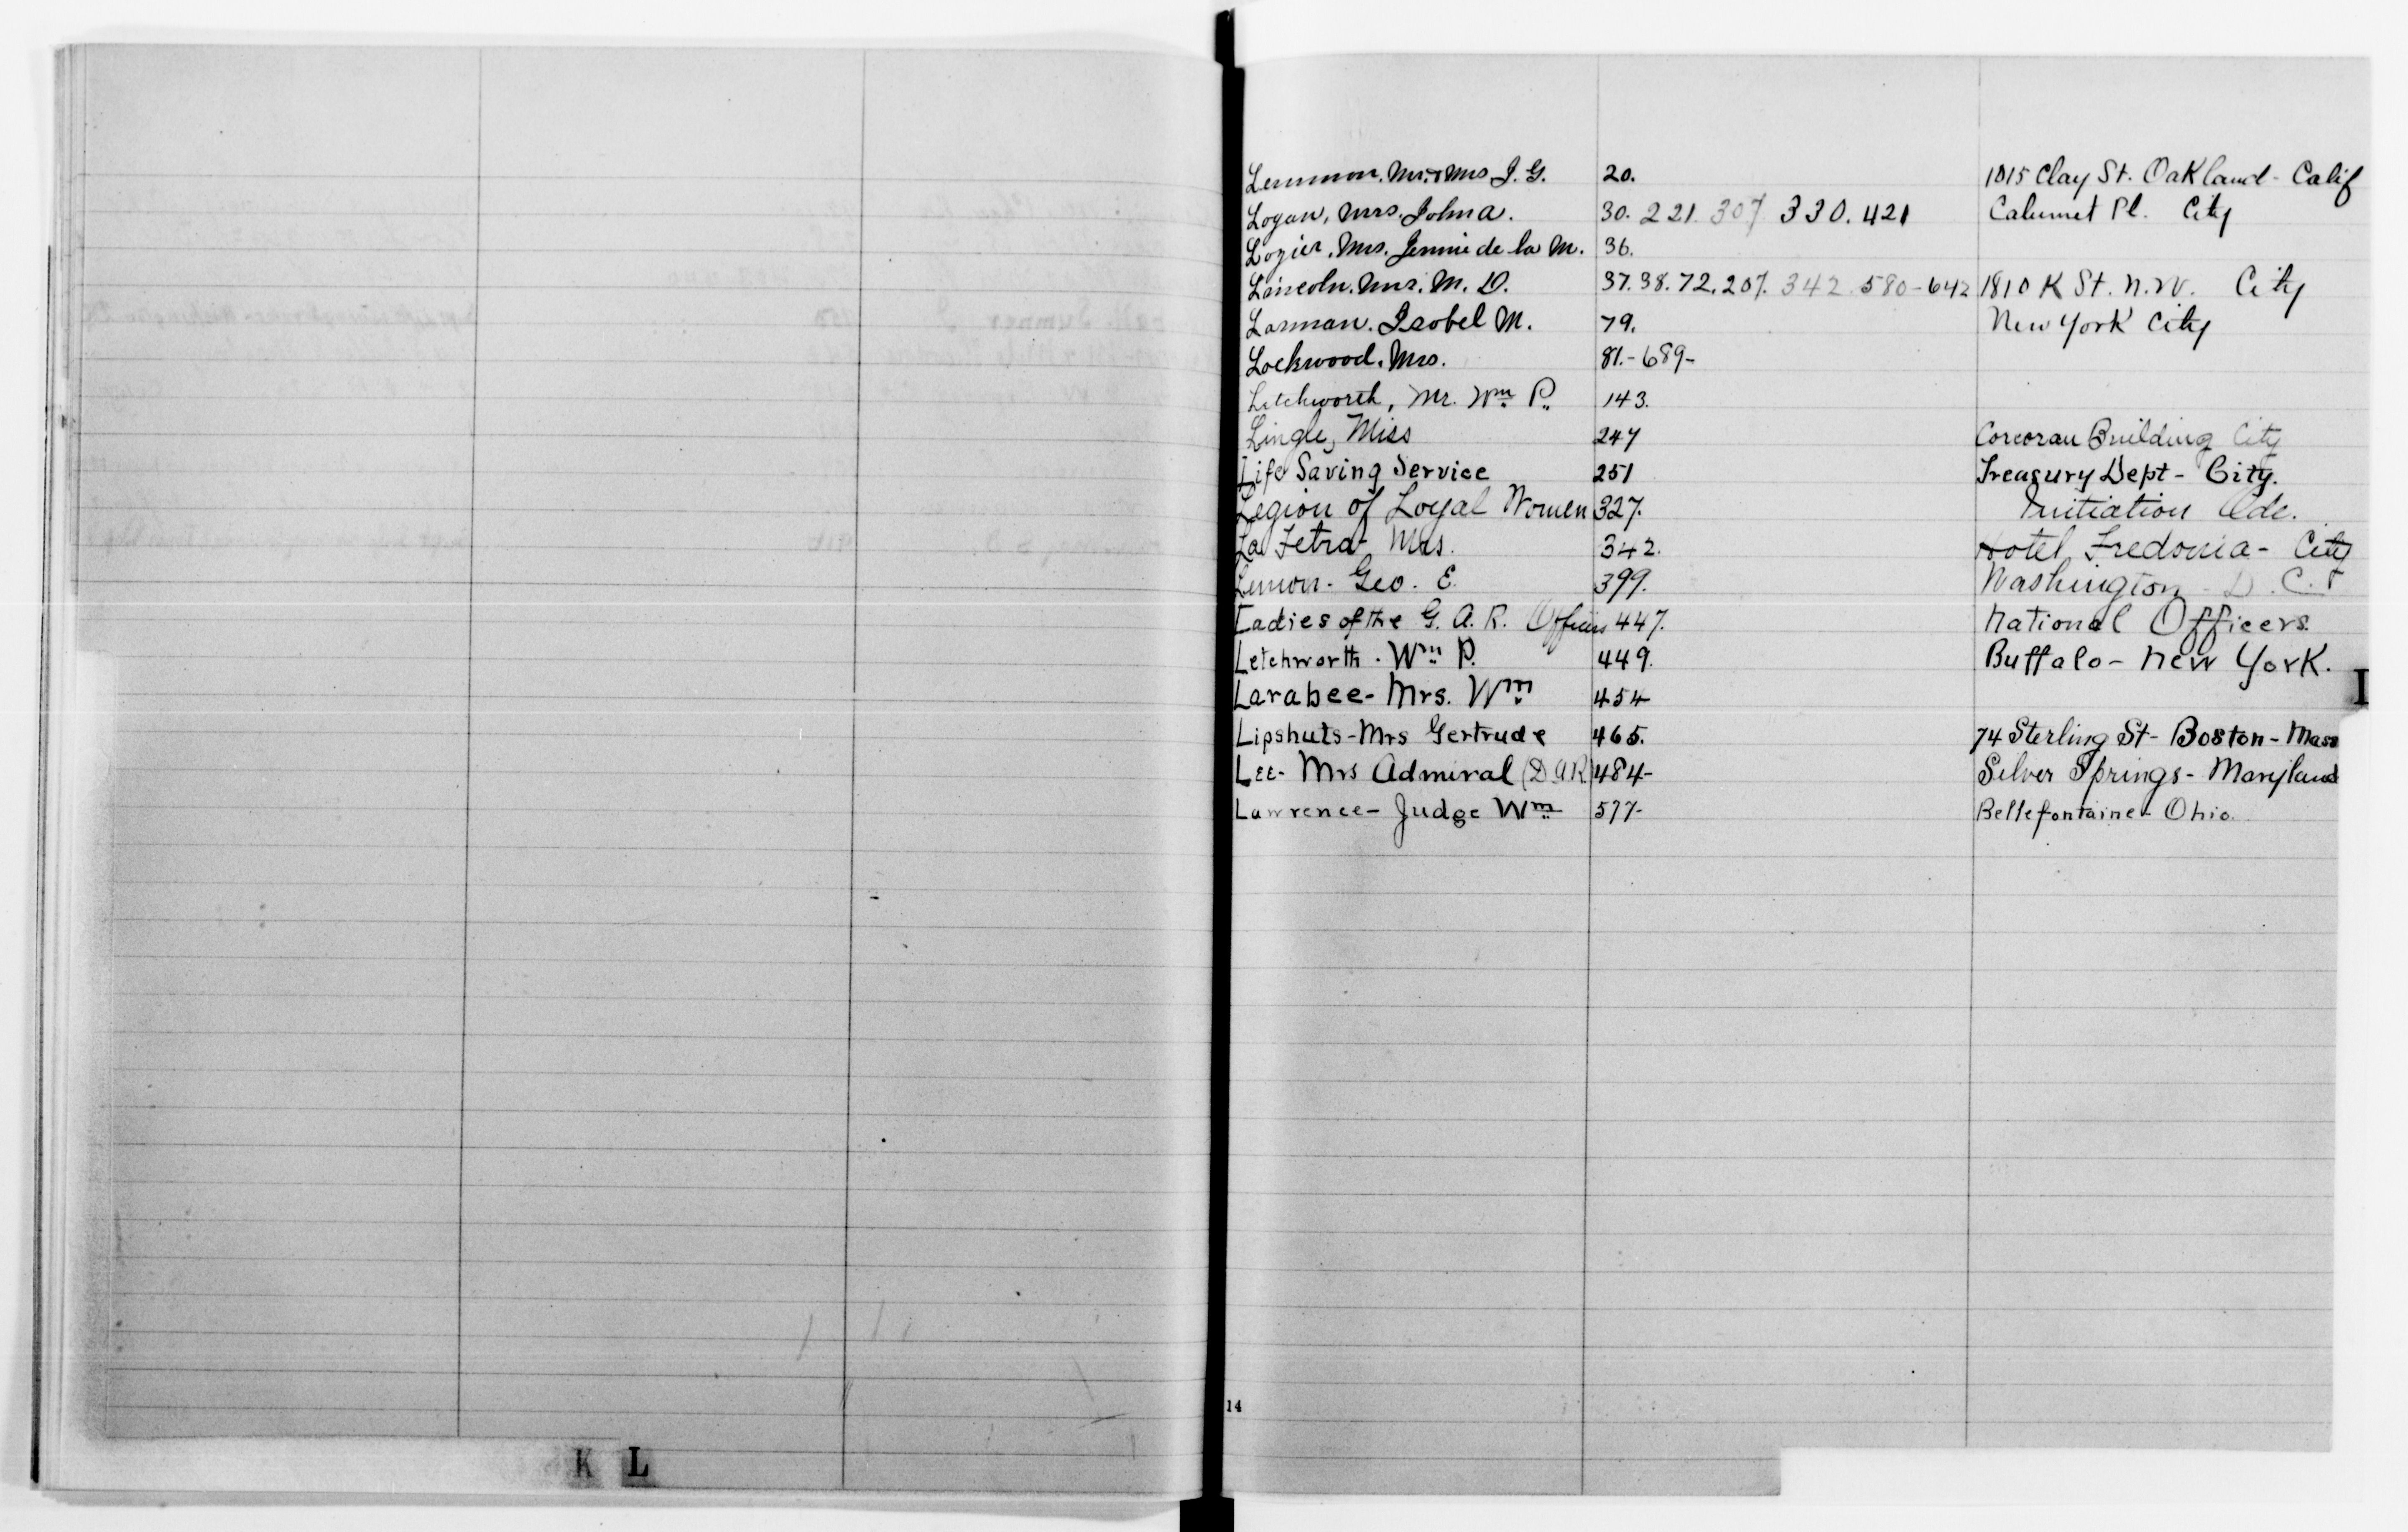 Lemmon. Mr. & Mrs J. G. 20. 1015 Clay St. Oakland - Calif
Logan, Mrs. John A. 30. 221. 307. 330. 421 Calumet Pl. City
Lozier. Mrs. Jennie de la M. 36.
Lincoln. Mrs. M. D. 37. 38. 72. 207. 342. 580 - 642 1810 K St. N.W. City
Larman. Isobel M. 79. New York City
Lockwood. Mrs. 81. - 689 -
Letchworth, Mr. Wm P. 143.
Lingle, Miss 247 Corcoran Building City
Life Saving Service 251 Treasury Dept - City.
Legion of Loyal Women 327. Initiation Ode.
La Fetra - Mrs. 342. Hotel Fredonia - City
Lemon - Geo. E. 399. Washington - D. C.
Ladies of the G. A. R. Officers 447. National Officers.
Letchworth. Wm P. 449. Buffalo - New York.
Larabee - Mrs. Wm 454
Lipshuts - Mrs Gertrude 465. 74 Sterling St - Boston - Mass
Lee - Mrs Admiral (D A R) 484 - Silver Springs - Maryland
Lawrence - Judge Wm 577 - Bellefontaine - Ohio.
14
K L